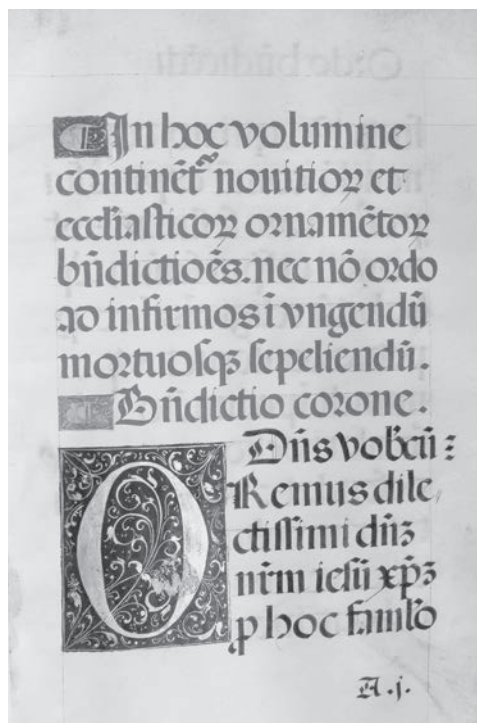 In hoc volumine
continēt᷑ novitioꝝ et
eccłiasticoꝝ ornamētoꝝ
bn̄dictiōēs. nec nō ordo
ad infirmos ī vngendū
mortuosqꝫ sepeliendū.
Bn̄dictio corone.
Dn̄s vobcū:
ORemus dile
ctissimi dn̄ꝫ
nr̄m iesū xp̄ꝫ
ꝓ hoc famło
A.j.